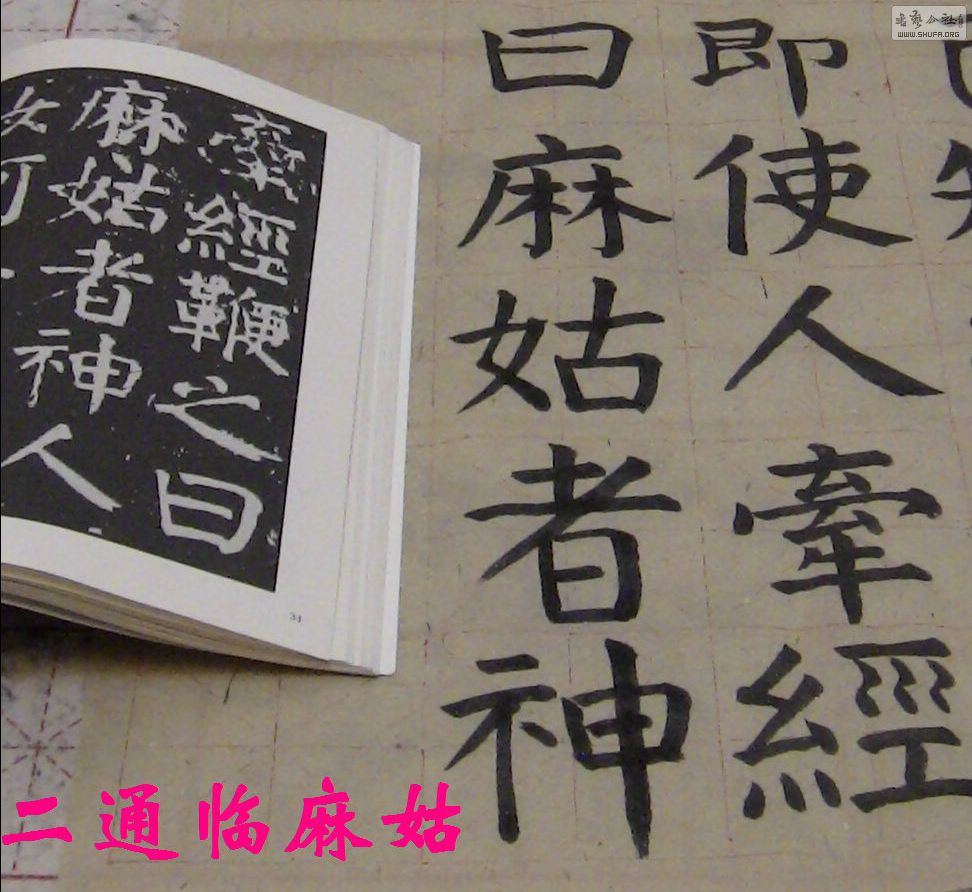 即使人牽經
曰麻姑者神
牽經鞭之曰
麻姑者神人
34
二通临麻姑
WWW.SHUFA.ORG